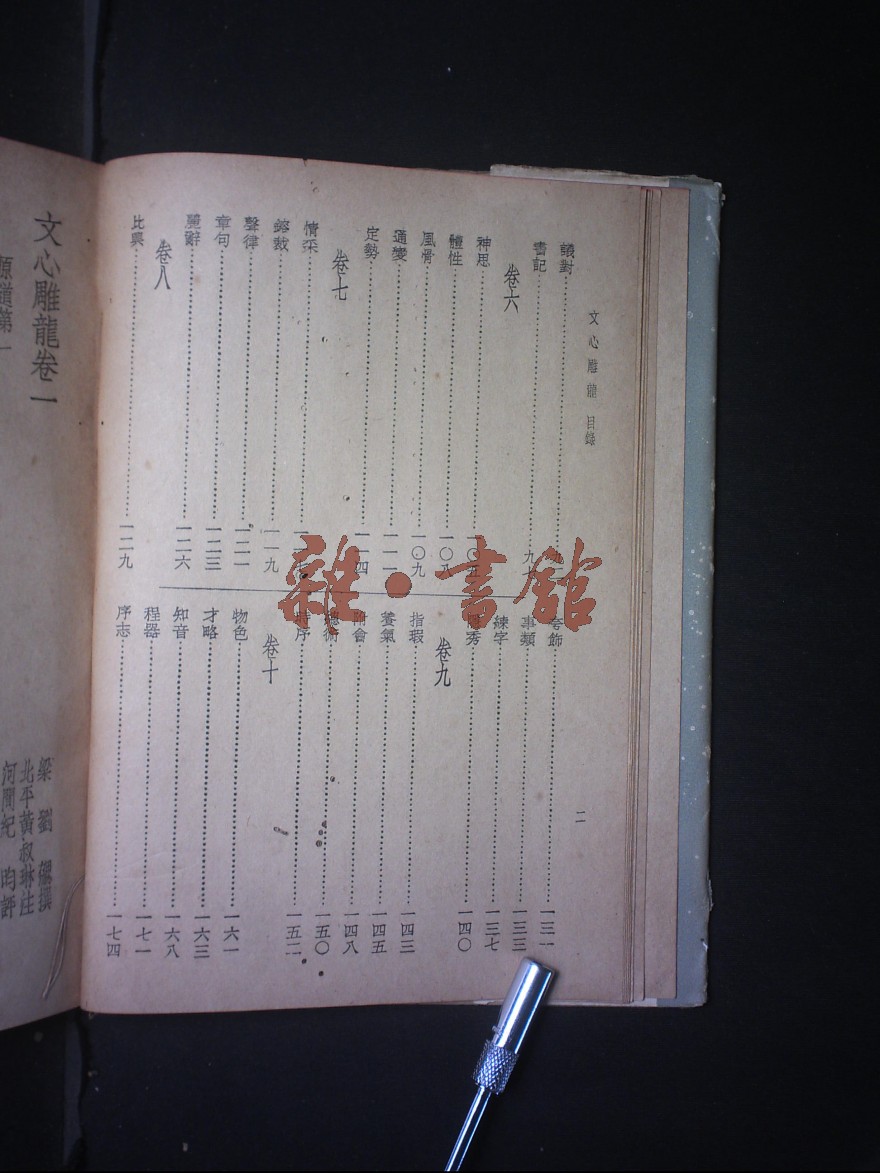 文心雕龍 目錄
議對
書記
卷六
神思
體性 一〇八
風骨 一〇九
通變 一一一
定勢 一一四
卷七
情采
鎔裁 一一九
聲律 一二一
章句 一二三
麗辭 一二六
卷八
比興 一二九
夸飾 一三一
事類 一三三
練字 一三七
隱秀 一四〇
卷九
指瑕 一四三
養氣 一四五
附會 一四八
總術 一五〇
時序 一五二
卷十
物色 一六一
才略 一六三
知音 一六八
程器 一七一
序志 一七四
二
文心雕龍卷一
梁 劉 勰撰
北平黃叔琳注
河間紀 昀評
原道第一
雜·書館